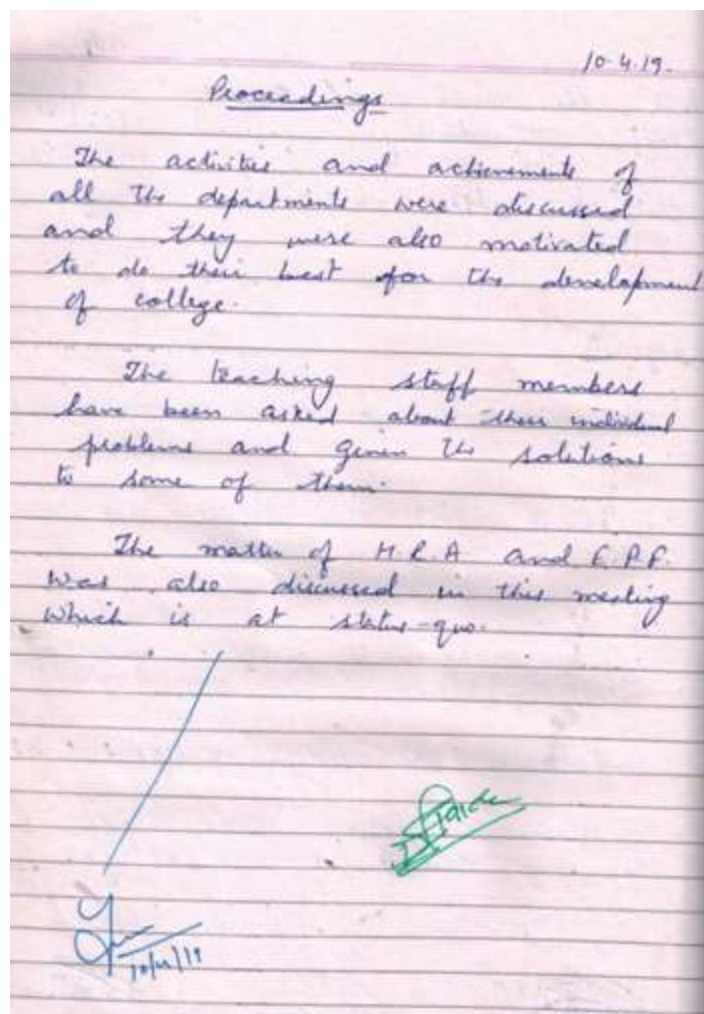 10.4.19.
Proceedings
The activities and achievements of
all the departments were discussed
and they were also motivated
to do their best for the development
of college.
The teaching staff members
have been asked about their individual
problems and given the solutions
to some of them.
The matter of H.R.A and E.P.F.
was also discussed in this meeting
which is at status-quo.
10/4/19